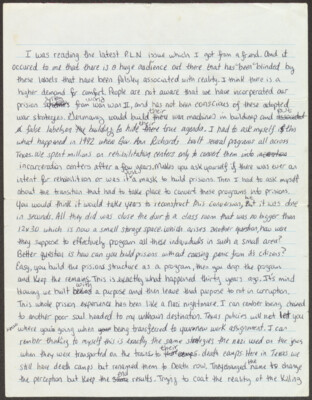 I was reading the latest PLN issue which I got from a friend. And it
occured to me that there is a huge audience out there that has "been" blinded by
these labels that have been falsley associated with reality. I think there is a
higher demand for comfort. People are not aware that we have incorporated our
prison systems using from war world II, and has not been conscious of these adopted
war strategies. Germany would build their war machines in building and
a false label on the building to hide their true agenda. I had to ask myself
what happened in 1992 when Gov Ann Richards built moral programs all across
Texas. We spent millions on rehabilitative centers only to convert them into
incarceration centers after a few years. Makes you ask yourself if there was ever an
intent for rehabilitation or was it a mask to build prisons. Then I had to ask myself
about the transition that had to take place to convert these programs into prison.
You would think it would take years to reconstruct this conversion, but it was done
in seconds. All they did was close the door to a class room that was no bigger than
12x30 which is now a small storage space which arises another question, how were
they suppose to effectively program all these individuals in such a small area?
Better question is how can you build prisons without causing panic from its citizens?
Easy, you build the prisons structure as a program, then you drop the program
and keep the remains. This is exactly what happened thirty years ago. It's mind
blowing we built with a purpose and then leave that purpose to rot in corruption.
This whole prison experience has been like a Nazi nightmare. I can remember being chained
to another poor soul headed to my unknown destination. Texas prisons will not let you
where you're going when your being transferred to your new work assignment. I can
remember thinking to myself this is exactly the same strategies the nazi used on the jews
when they were transported on the trains to their death camps. Here in Texas we
still have death camps but renamed them to Death row. They changed the name to change
the perception but keep the same end results. Trying to coat the reality of the killing